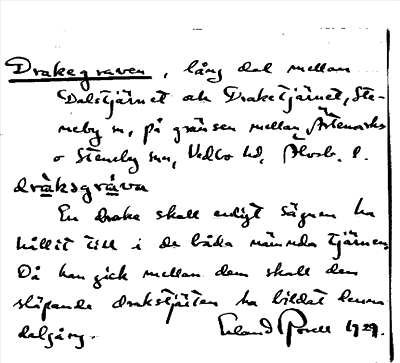 Drakegraven, lång dal mellan
Dalstjärnet och Draketjärnet, Ste-
neby sn, på gränsen mellan Ärtemarks
o Steneby snr, Vedbo hd, Älvsb. l.
dràksgráva
En drake skall enligt sägnen ha
hållit till i de båda nämnda tjärnen
Då han gick mellan dem skall den
släpande drakstjärten ha bildat denna
dalgång. Erland 1929.